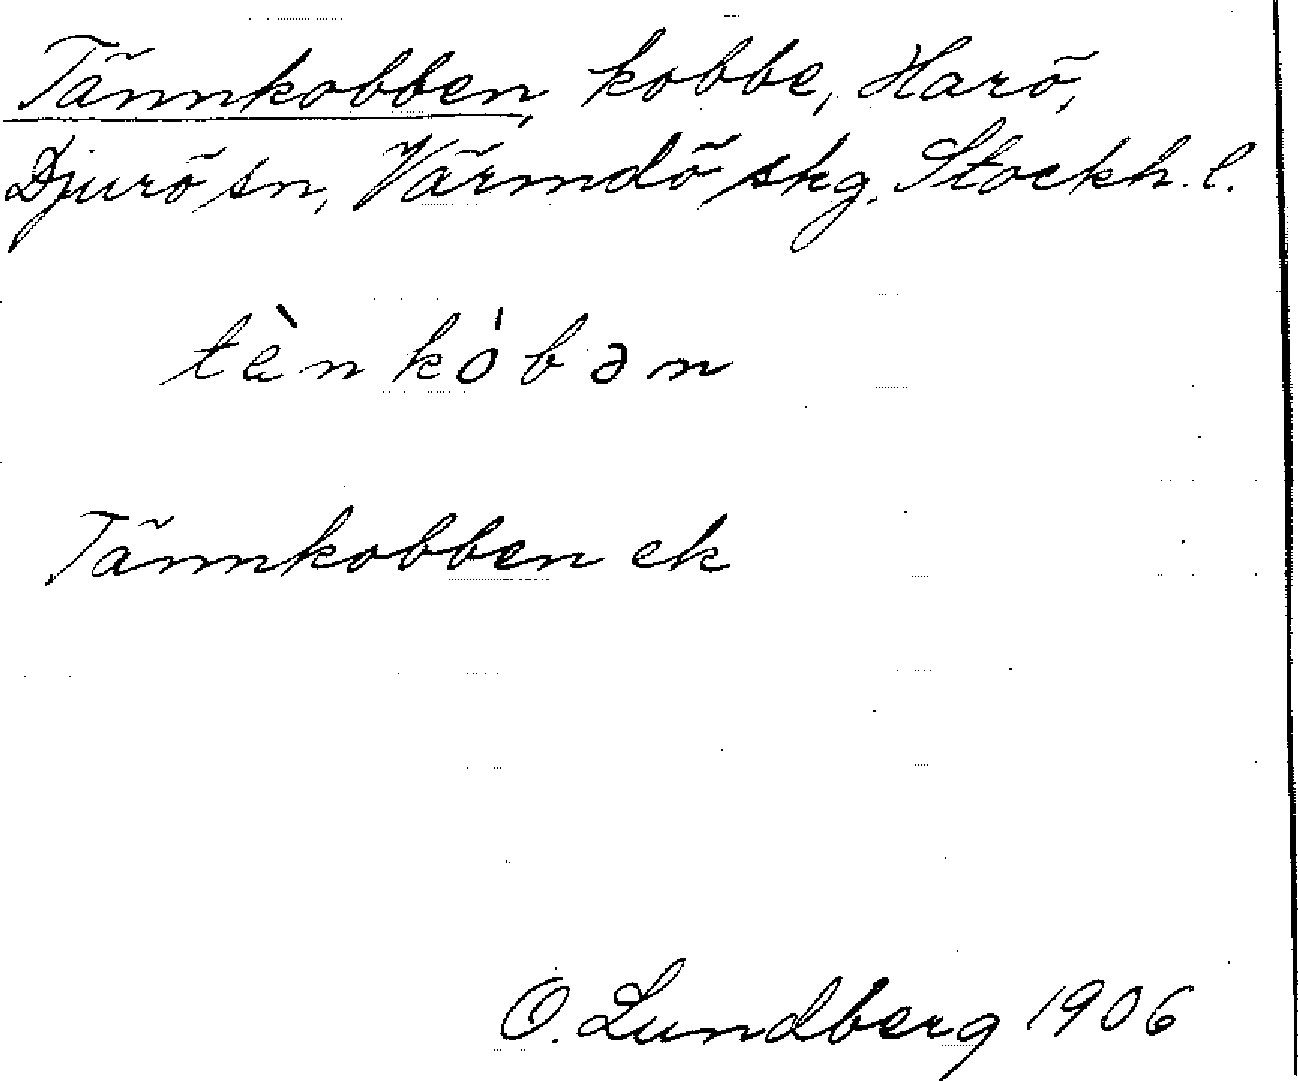 Tännkobben, kobbe, Harö,
Djurö sn, Värmdö skg. Stockh. l.
tènkóbən
Tännkobben ek
O. Lundberg 1906